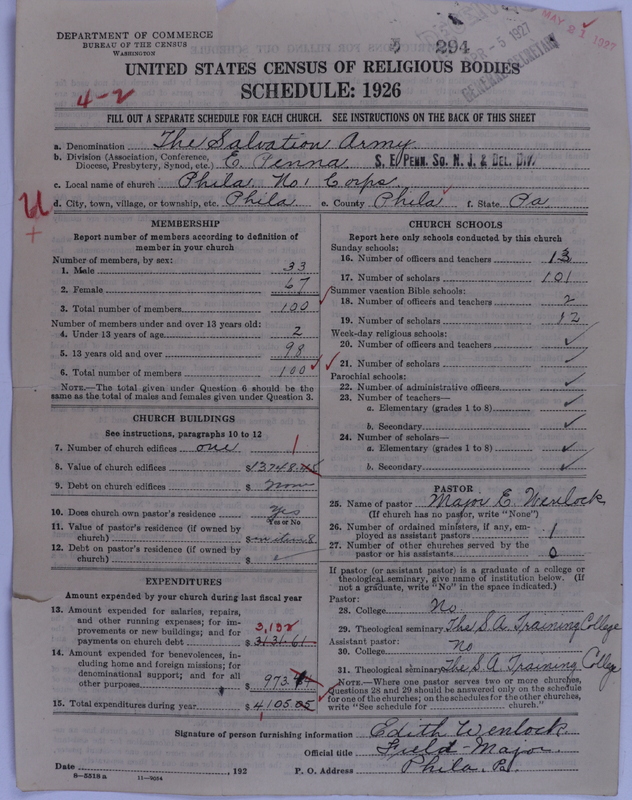 DEPARTMENT OF COMMERCE
BUREAU OF THE CENSUS
WASHINGTON
294
APR - 5 1927
GENERAL SECRETARY
MAY 21 1927
UNITED STATES CENSUS OF RELIGIOUS BODIES
SCHEDULE: 1926
4-2
FILL OUT A SEPARATE SCHEDULE FOR EACH CHURCH. SEE INSTRUCTIONS ON THE BACK OF THIS SHEET
a. Denomination The Salvation Army
b. Division (Association, Conference, Diocese, Presbytery, Synod, etc.) E. Penna S. E. PENN. SO. N. J. & DEL. DIV.
c. Local name of church Phila No. 1 Corps
d. City, town, village, or township, etc. Phila e. County Phila f. State Pa
U
+
MEMBERSHIP
Report number of members according to definition of
member in your church
Number of members, by sex:
1. Male 33
2. Female 67
3. Total number of members 100
Number of members under and over 13 years old:
4. Under 13 years of age 2
5. 13 years old and over 98
6. Total number of members 100
NOTE.—The total given under Question 6 should be the
same as the total of males and females given under Question 3.
CHURCH BUILDINGS
See instructions, paragraphs 10 to 12
7. Number of church edifices one 1
8. Value of church edifices $13748.
9. Debt on church edifices $ None
10. Does church own pastor's residence? Yes
Yes or No
11. Value of pastor's residence (if owned by
church) $ in item 8
12. Debt on pastor's residence (if owned by
church) $
EXPENDITURES
Amount expended by your church during last fiscal year
13. Amount expended for salaries, repairs,
and other running expenses; for im-
provements or new buildings; and for
payments on church debt $3131.61 3,132
14. Amount expended for benevolences, in-
cluding home and foreign missions; for
denominational support; and for all
other purposes $973.
15. Total expenditures during year $4105.05
CHURCH SCHOOLS
Report here only schools conducted by this church
Sunday schools:
16. Number of officers and teachers 13
17. Number of scholars 101
Summer vacation Bible schools:
18. Number of officers and teachers 2
19. Number of scholars 12
Week-day religious schools:
20. Number of officers and teachers
21. Number of scholars
Parochial schools:
22. Number of administrative officers
23. Number of teachers—
a. Elementary (grades 1 to 8)
b. Secondary
24. Number of scholars—
a. Elementary (grades 1 to 8)
b. Secondary
PASTOR
25. Name of pastor Major E. Wenlock
(If church has no pastor, write "None")
26. Number of ordained ministers, if any, em-
ployed as assistant pastors 1
27. Number of other churches served by the
pastor or his assistants 0
If pastor (or assistant pastor) is a graduate of a college or
theological seminary, give name of institution below. (If
not a graduate, write "No" in the space indicated.)
Pastor:
28. College No
29. Theological seminary The S.A. Training College
Assistant pastor:
30. College No
31. Theological seminary The S.A. Training College
NOTE.—Where one pastor serves two or more churches,
Questions 28 and 29 should be answered only on the schedule
for one of the churches; on the schedules for the other churches,
write "See schedule for church."
Signature of person furnishing information Edith Wenlock
Official title Field-Major
Date , 192 P. O. Address Phila. Pa.
8-5518 a 11-9034